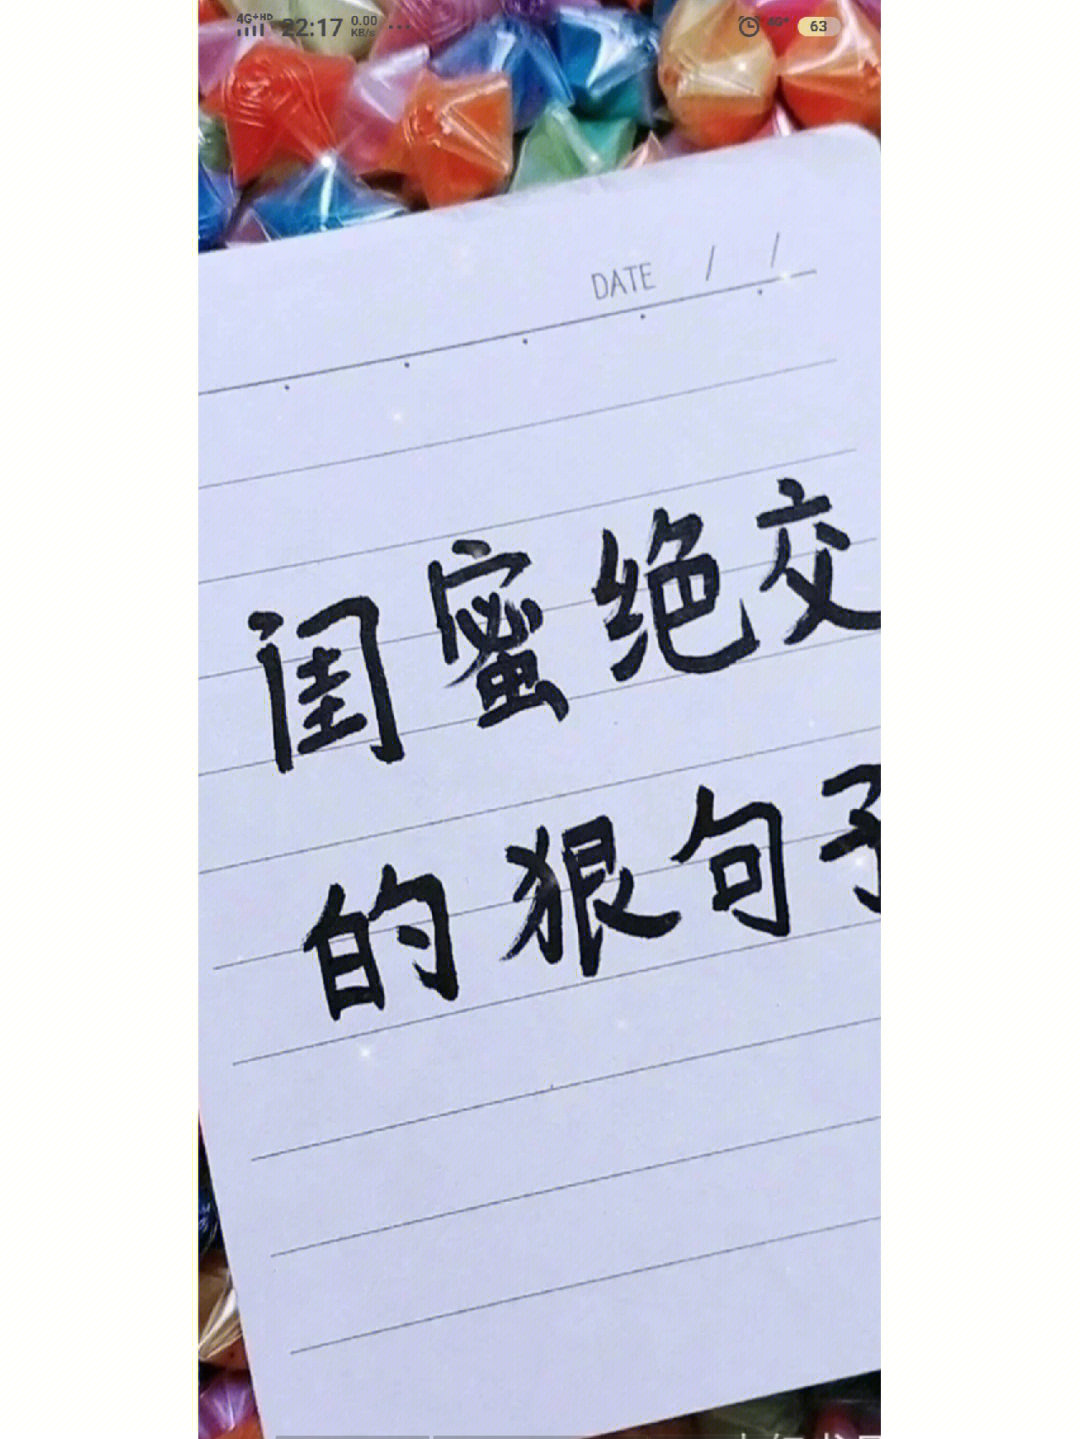 4G+HD 22:17 0.00 KB/s ... 4G+ 63
DATE / /
闺蜜绝交
的狠句子